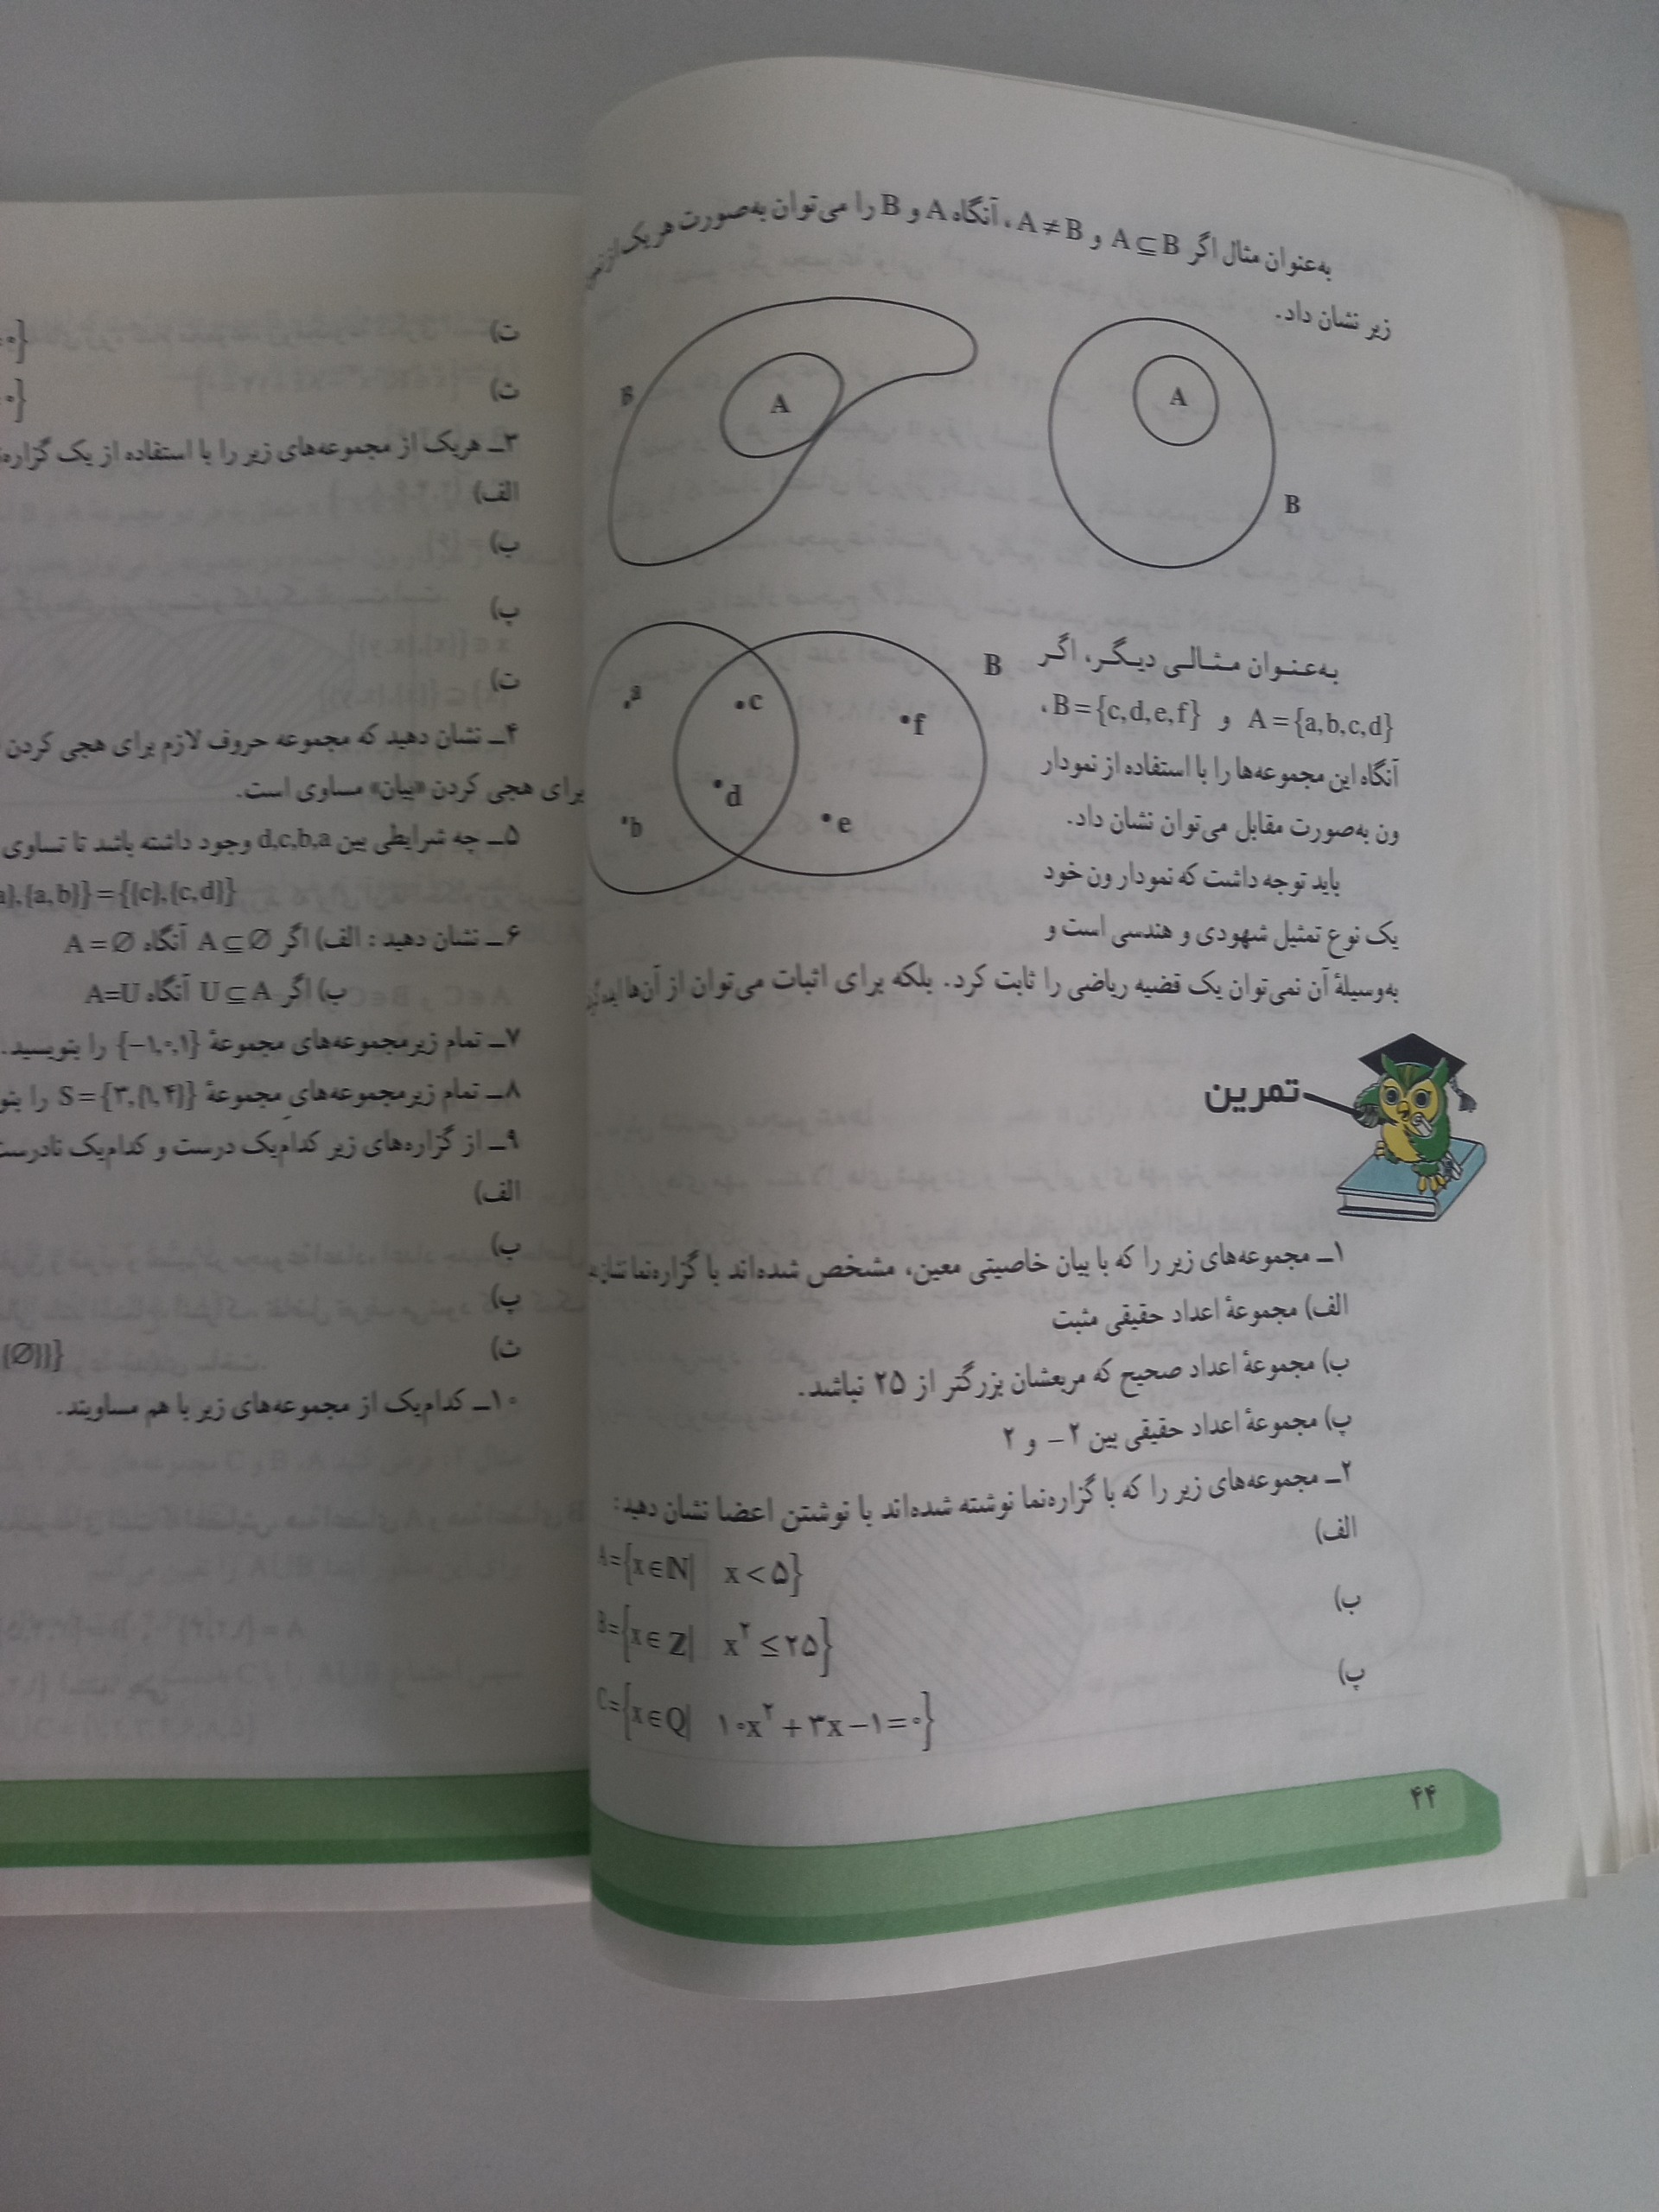 به‌عنوان مثال اگر A⊆B و A≠B ، آنگاه A و B را می‌توان به‌صورت هر یک از
زیر نشان داد.
B
A
A
B
به‌عنوان مثالی دیگر، اگر
A={a,b,c,d} و B={c,d,e,f} ،
آنگاه این مجموعه‌ها را با استفاده از نمودار
ون به‌صورت مقابل می‌توان نشان داد.
باید توجه داشت که نمودار ون خود
یک نوع تمثیل شهودی و هندسی است و
به‌وسیلهٔ آن نمی‌توان یک قضیه ریاضی را ثابت کرد. بلکه برای اثبات می‌توان از آن‌ها
B
a
c
f
d
b
e
تمرین
۱ــ مجموعه‌های زیر را که با بیان خاصیتی معین، مشخص شده‌اند با گزاره‌نما
الف) مجموعهٔ اعداد حقیقی مثبت
ب) مجموعهٔ اعداد صحیح که مربعشان بزرگتر از ۲۵ نباشد.
پ) مجموعهٔ اعداد حقیقی بین ۲− و ۲
۲ــ مجموعه‌های زیر را که با گزاره‌نما نوشته شده‌اند با نوشتن اعضا نشان دهید:
الف) A={x∈ℕ| x<۵}
ب) B={x∈ℤ| x^۲≤۲۵}
پ) C={x∈Q| ۱۰x^۲+۳x−۱=۰}
۴۴
ت)
ث)
۳ــ هریک از مجموعه‌های زیر را با استفاده از یک
الف)
ب)
پ)
ت)
۴ــ نشان دهید که مجموعه حروف لازم برای هجی کردن
برای هجی کردن «بیان» مساوی است.
۵ــ چه شرایطی بین d,c,b,a وجود داشته باشد تا تساوی
{a,b}}={{c},{c,d}}
۶ــ نشان دهید : الف) اگر A⊆∅ آنگاه A=∅
ب) اگر U⊆A آنگاه A=U
۷ــ تمام زیرمجموعه‌های مجموعهٔ {−۱,۰,۱} را بنویسید.
۸ــ تمام زیرمجموعه‌های مجموعهٔ S={۳,{۱,۴}} را
۹ــ از گزاره‌های زیر کدام‌یک درست و کدام‌یک
الف)
ب)
پ)
ث) {∅}}
۱۰ــ کدام‌یک از مجموعه‌های زیر با هم مساویند.